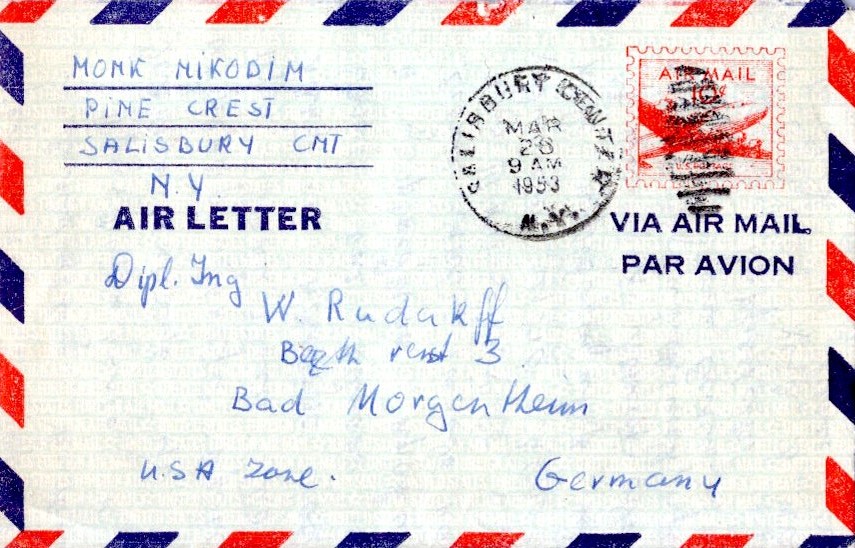 MONK NIKODIM
PINE CREST
SALISBURY CNT
N.Y.
AIR LETTER
SALISBURY CENTER
MAR
28
9 AM
1953
N.Y.
AIR MAIL
10¢
VIA AIR MAIL
PAR AVION
Dipl. Ing
W. Rudakoff
3
Bad Morgentheim
USA Zone.
Germany